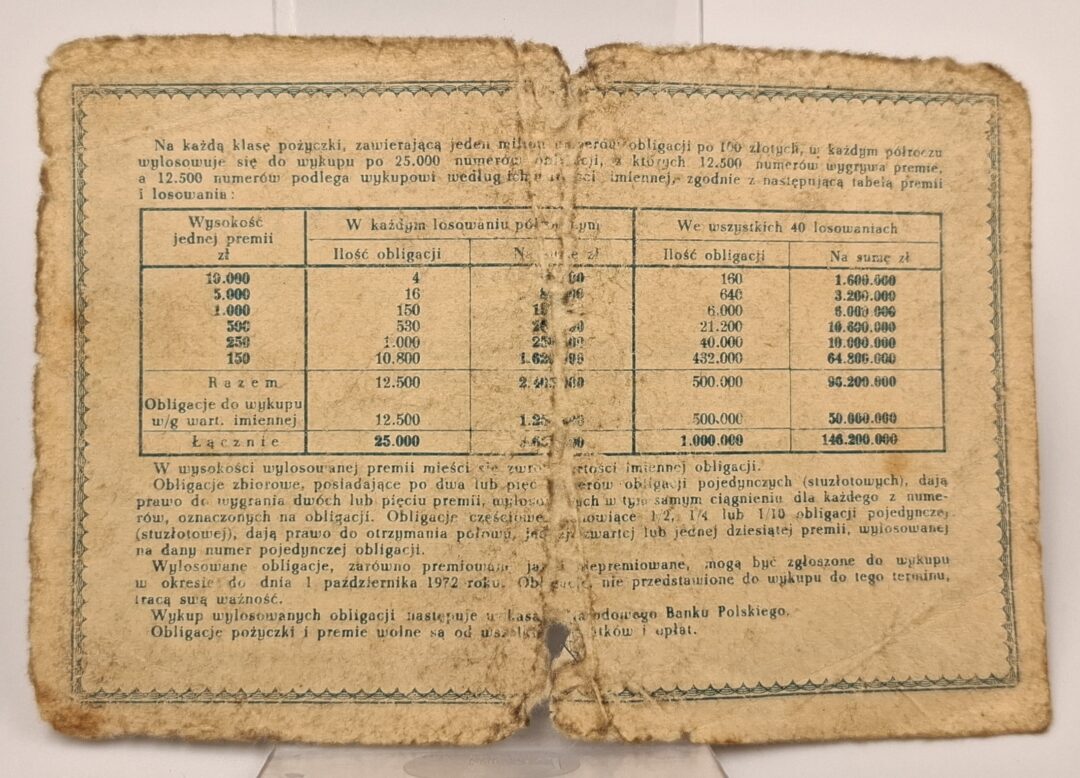 Na każdą klasę pożyczki, zawierającą jeden obligacji po 100 złotych, w każdym półroczu
wylosowuje się do wykupu po 25.000 numerów z których 12.500 numerów wygrywa premie,
a 12.500 numerów podlega wykupowi według ich imiennej, zgodnie z następującą tabelą premii
i losowania:
Wysokość jednej premii zł W każdym losowaniu We wszystkich 40 losowaniach
Ilość obligacji zł Ilość obligacji Na sumę zł
10.000 4 160 1.600.000
5.000 16 640 3.200.000
1.000 150 6.000 6.000.000
500 530 21.200 10.600.000
250 1.000 40.000 10.000.000
150 10.800 432.000 64.800.000
Razem 12.500 500.000 96.200.000
Obligacje do wykupu
w/g wart. imiennej 12.500 500.000 50.000.000
Łącznie 25.000 1.000.000 146.200.000
W wysokości wylosowanej premii mieści się imiennej obligacji.
Obligacje zbiorowe, posiadające po dwa lub pięć obligacji pojedynczych (stuzłotowych), dają
prawo do wygrania dwóch lub pięciu premii, w tym samym ciągnieniu dla każdego z nume-
rów, oznaczonych na obligacji. Obligacje częściowe, 1/2, 1/4 lub 1/10 obligacji pojedynczej
(stuzłotowej), dają prawo do otrzymania połowy, lub jednej dziesiątej premii, wylosowanej
na dany numer pojedynczej obligacji.
Wylosowane obligacje, zarówno premiowane mogą być zgłoszone do wykupu
w okresie do dnia 1 października 1972 roku. nie przedstawione do wykupu do tego terminu,
tracą swą ważność.
Wykup wylosowanych obligacji następuje w Banku Polskiego.
Obligacje pożyczki i premie wolne są od i opłat.